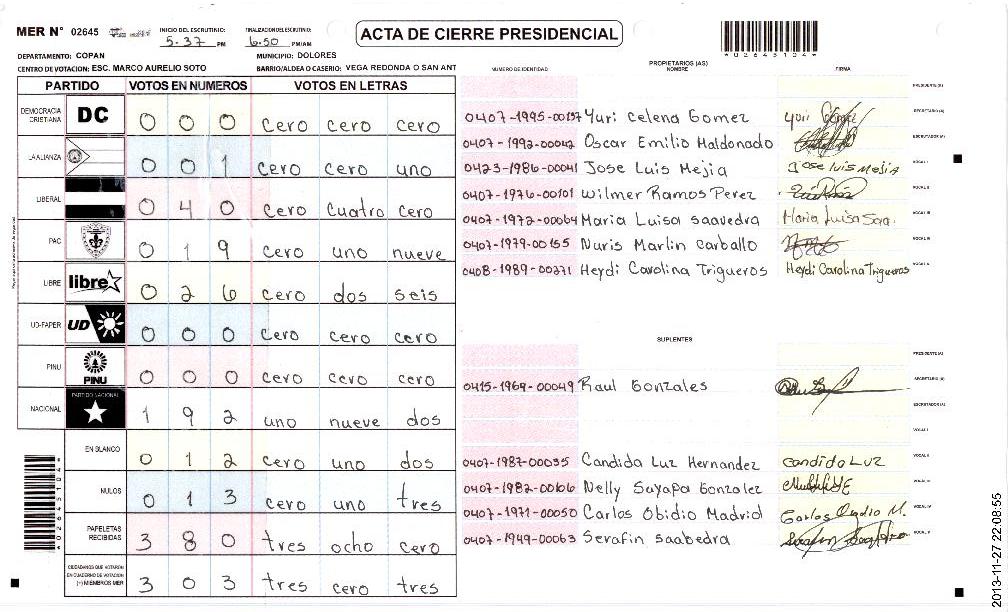 MER N° 02645
INICIO DEL ESCRUTINIO: 5:37 PM
FINALIZACION DEL ESCRUTINIO: 6:50 PM/AM
ACTA DE CIERRE PRESIDENCIAL
DEPARTAMENTO: COPAN
MUNICIPIO: DOLORES
CENTRO DE VOTACION: ESC. MARCO AURELIO SOTO
BARRIO/ALDEA O CASERIO: VEGA REDONDA O SAN ANT
PARTIDO VOTOS EN NUMEROS VOTOS EN LETRAS
DEMOCRACIA CRISTIANA DC 0 0 0 cero cero cero
LA ALIANZA 0 0 1 cero cero uno
LIBERAL 0 4 0 cero cuatro cero
PAC 0 1 9 cero uno nueve
LIBRE libre 0 2 6 cero dos seis
UD-FAPER UD 0 0 0 cero cero cero
PINU PINU 0 0 0 cero cero cero
NACIONAL PARTIDO NACIONAL 1 9 2 uno nueve dos
EN BLANCO 0 1 2 cero uno dos
NULOS 0 1 3 cero uno tres
PAPELETAS RECIBIDAS 3 8 0 tres ocho cero
CIUDADANOS QUE VOTARON EN CUADERNO DE VOTACION (+) MIEMBROS MER 3 0 3 tres cero tres
PROPIETARIOS (AS)
NUMERO DE IDENTIDAD NOMBRE FIRMA
PRESIDENTE (A)
0407-1995-00157 Yuri Celena Gomez SECRETARIO (A)
0407-1992-00042 Oscar Emilio Maldonado ESCRUTADOR (A)
0423-1986-00041 Jose Luis Mejia Jose Luis Mejia VOCAL I
0407-1976-00101 Wilmer Ramos Perez VOCAL II
0407-1972-00064 Maria Luisa saavedra Maria Luisa Saa. VOCAL III
0407-1979-00155 Nuris Marlin Carballo VOCAL IV
0408-1989-00271 Heydi Carolina Trigueros Heydi Carolina Trigueros VOCAL V
SUPLENTES
PRESIDENTE (A)
0415-1969-00049 Raul Gonzales SECRETARIO (A)
ESCRUTADOR (A)
VOCAL I
0407-1987-00035 Candida Luz Hernandez candida LUZ VOCAL II
0407-1982-00106 Nelly Sayapa Gonzalez VOCAL III
0407-1971-00050 Carlos Obidio Madrid Carlos Ovidio M. VOCAL IV
0407-1949-00063 Serafin Saabedra VOCAL V
2013-11-27 22:08:55